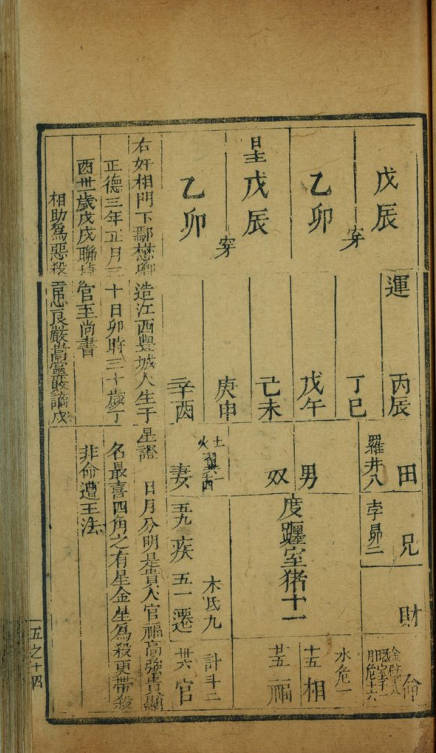 戊辰
穿
乙卯
日主
戊辰
穿
乙卯
運
丙辰
丁巳
戊午
己未
庚申
辛酉
田
兄
財
命
羅井八
孛昴二
男
双
度躔室猪十一
水危一
十五相
廿五福
土
火
妻
疾
五一遷
官
木氐九
計斗二
右奸相門下鄢懋卿造江西豐城人生于
正德三年正月三十日卯時三十歲丁
酉卅一歲戊戌聯捷官至尚書
相助為惡殺
星證
日月分明是貴人官福高強貴顯
名最喜四角之有星金星為殺更帶殺
非命遭王法
五之十四